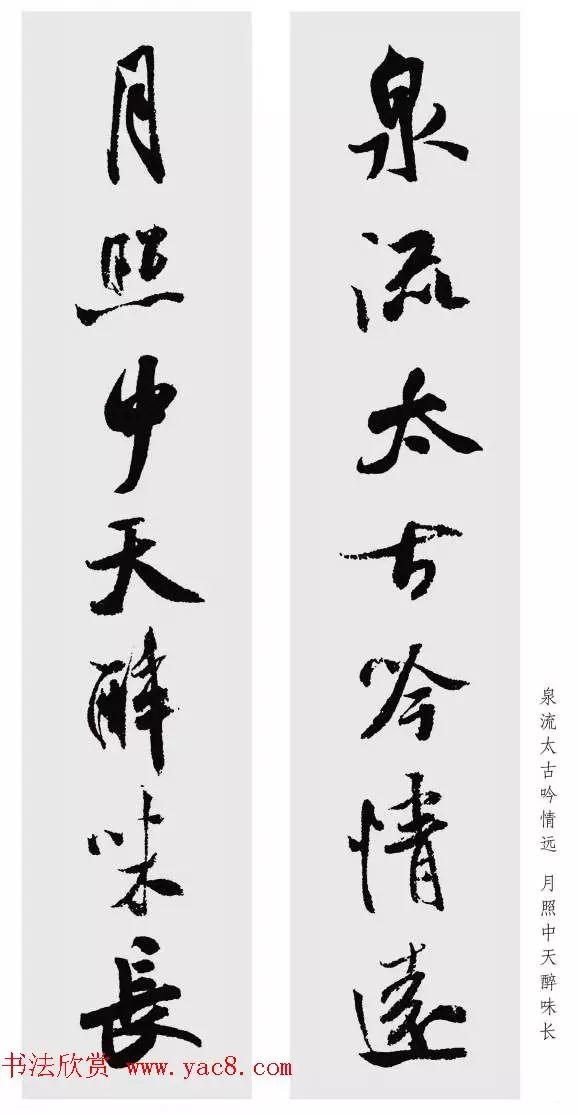 泉流太古吟情遠
月照中天醉味長
泉流太古吟情远 月照中天醉味长
书法欣赏 www.yac8.com